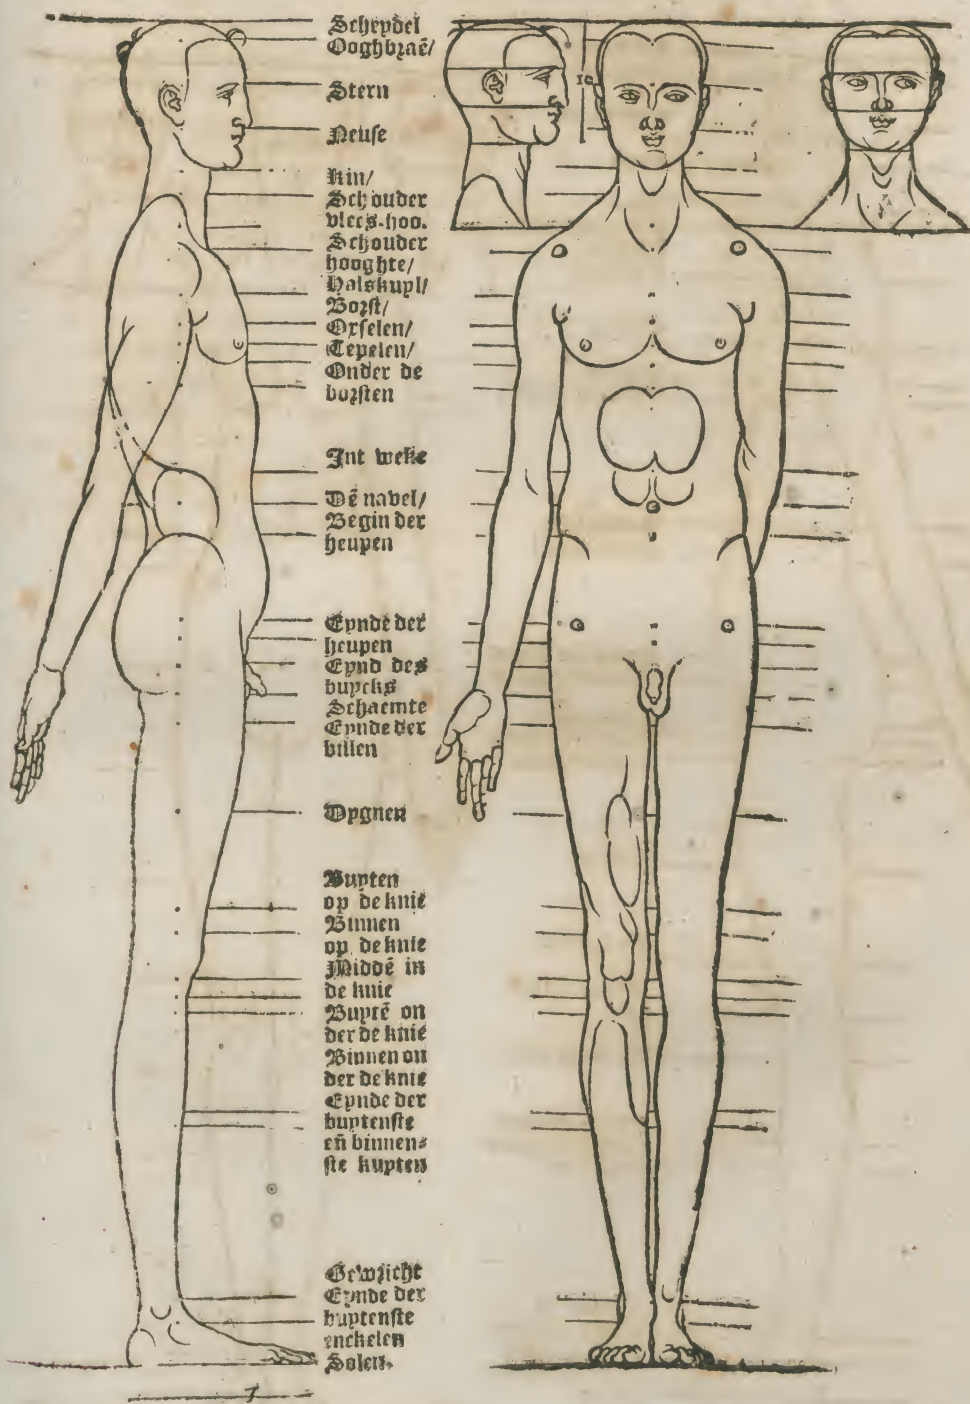 Scheydel
Ooghbraē/
Stern
Neuse
Kin/
Schouder
vlees-hoo.
Schouder
hooghte/
Halskuyl/
Borst/
Oxselen/
Tepelen/
Onder de
borsten
Int weke
Dē navel/
Begin der
heupen
Eynde der
heupen
Eynd des
buycks
Schaemte
Eynde der
billen
Buyten
op de knie
Binnen
op de knie
Middē in
de knie
Buytē on
der de knie
Binnen on
der de knie
Eynde der
buytenste
eñ binnen⸗
ste kuyten
Gewricht
Eynde der
buytenste
enckelen
Solen.
10
7